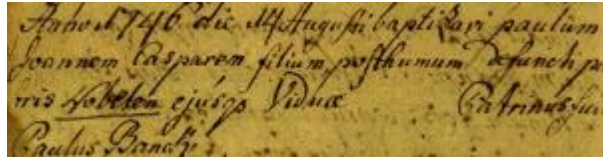 Anno 1746 die 14 Augusti baptizavi paulum
Joannem Casparem filium posthumum defuncti
Nobelen ejusq Viduæ Patrinus fui
Paulus Banck